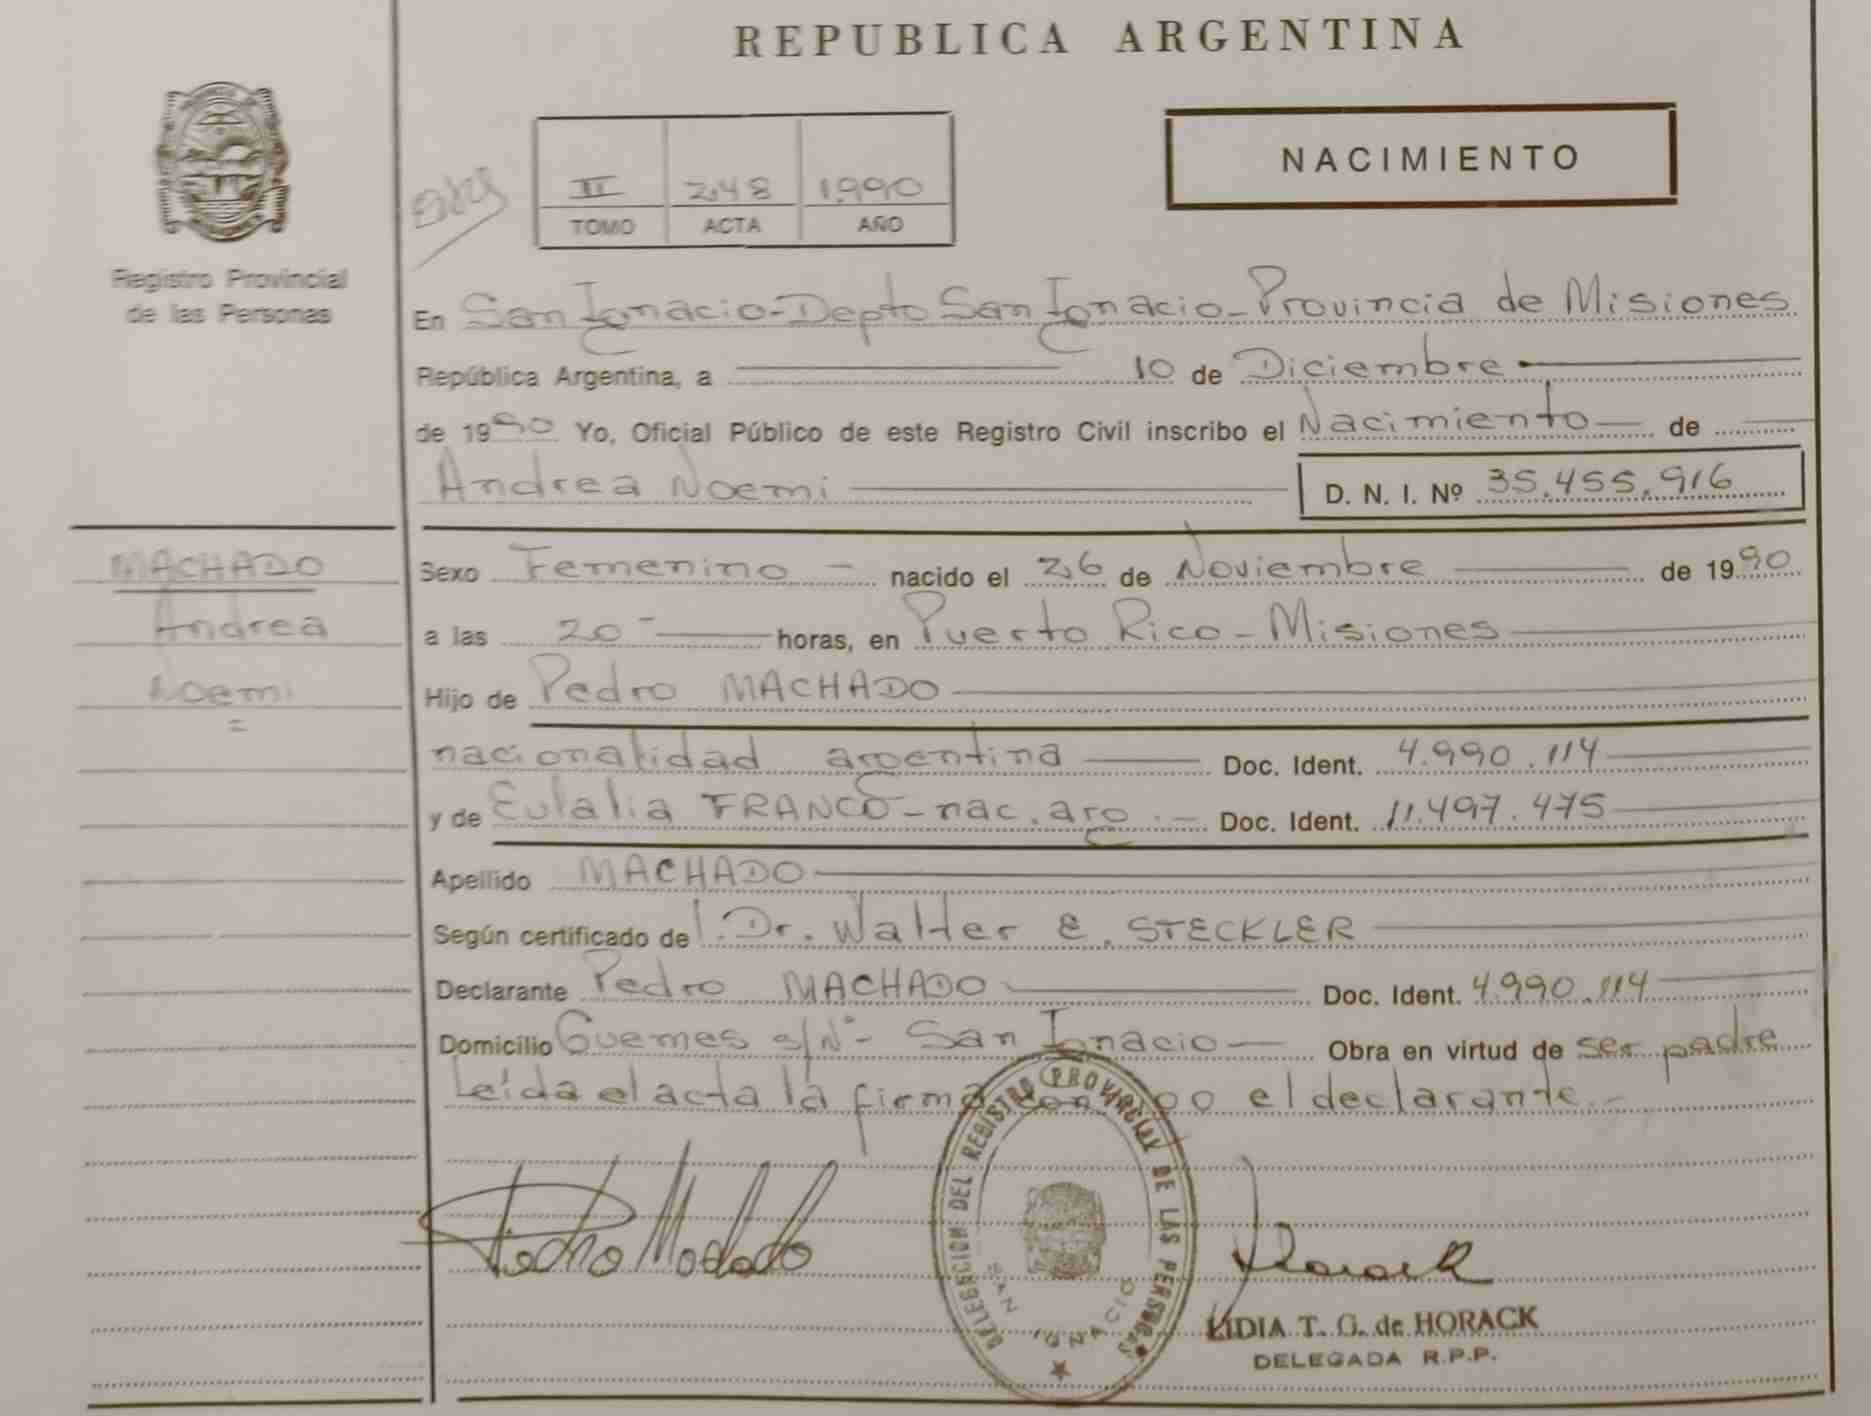 REPUBLICA ARGENTINA
NACIMIENTO
II 248 1990
TOMO ACTA AÑO
Registro Provincial
de las Personas
En San Ignacio-Depto San Ignacio-Provincia de Misiones
República Argentina, a 10 de Diciembre
de 1990 Yo, Oficial Público de este Registro Civil inscribo el Nacimiento de
Andrea Noemi D. N. I. Nº 35.455.916
MACHADO
Andrea
Noemi
Sexo Femenino - nacido el 26 de Noviembre de 1990
a las 20 horas, en Puerto Rico - Misiones
Hijo de Pedro MACHADO
nacionalidad argentina Doc. Ident. 4.990.114
y de Eulalia FRANCO - nac. arg. - Doc. Ident. 11.497.475
Apellido MACHADO
Según certificado del Dr. Walter E. STECKLER
Declarante Pedro MACHADO Doc. Ident. 4.990.114
Domicilio Guemes s/Nº - San Ignacio Obra en virtud de ser padre
Leída el acta la firma el declarante.-
Pedro Machado
Horack
DELEGACION DEL REGISTRO PROVINCIAL DE LAS PERSONAS
SAN IGNACIO
LIDIA T. G. de HORACK
DELEGADA R.P.P.